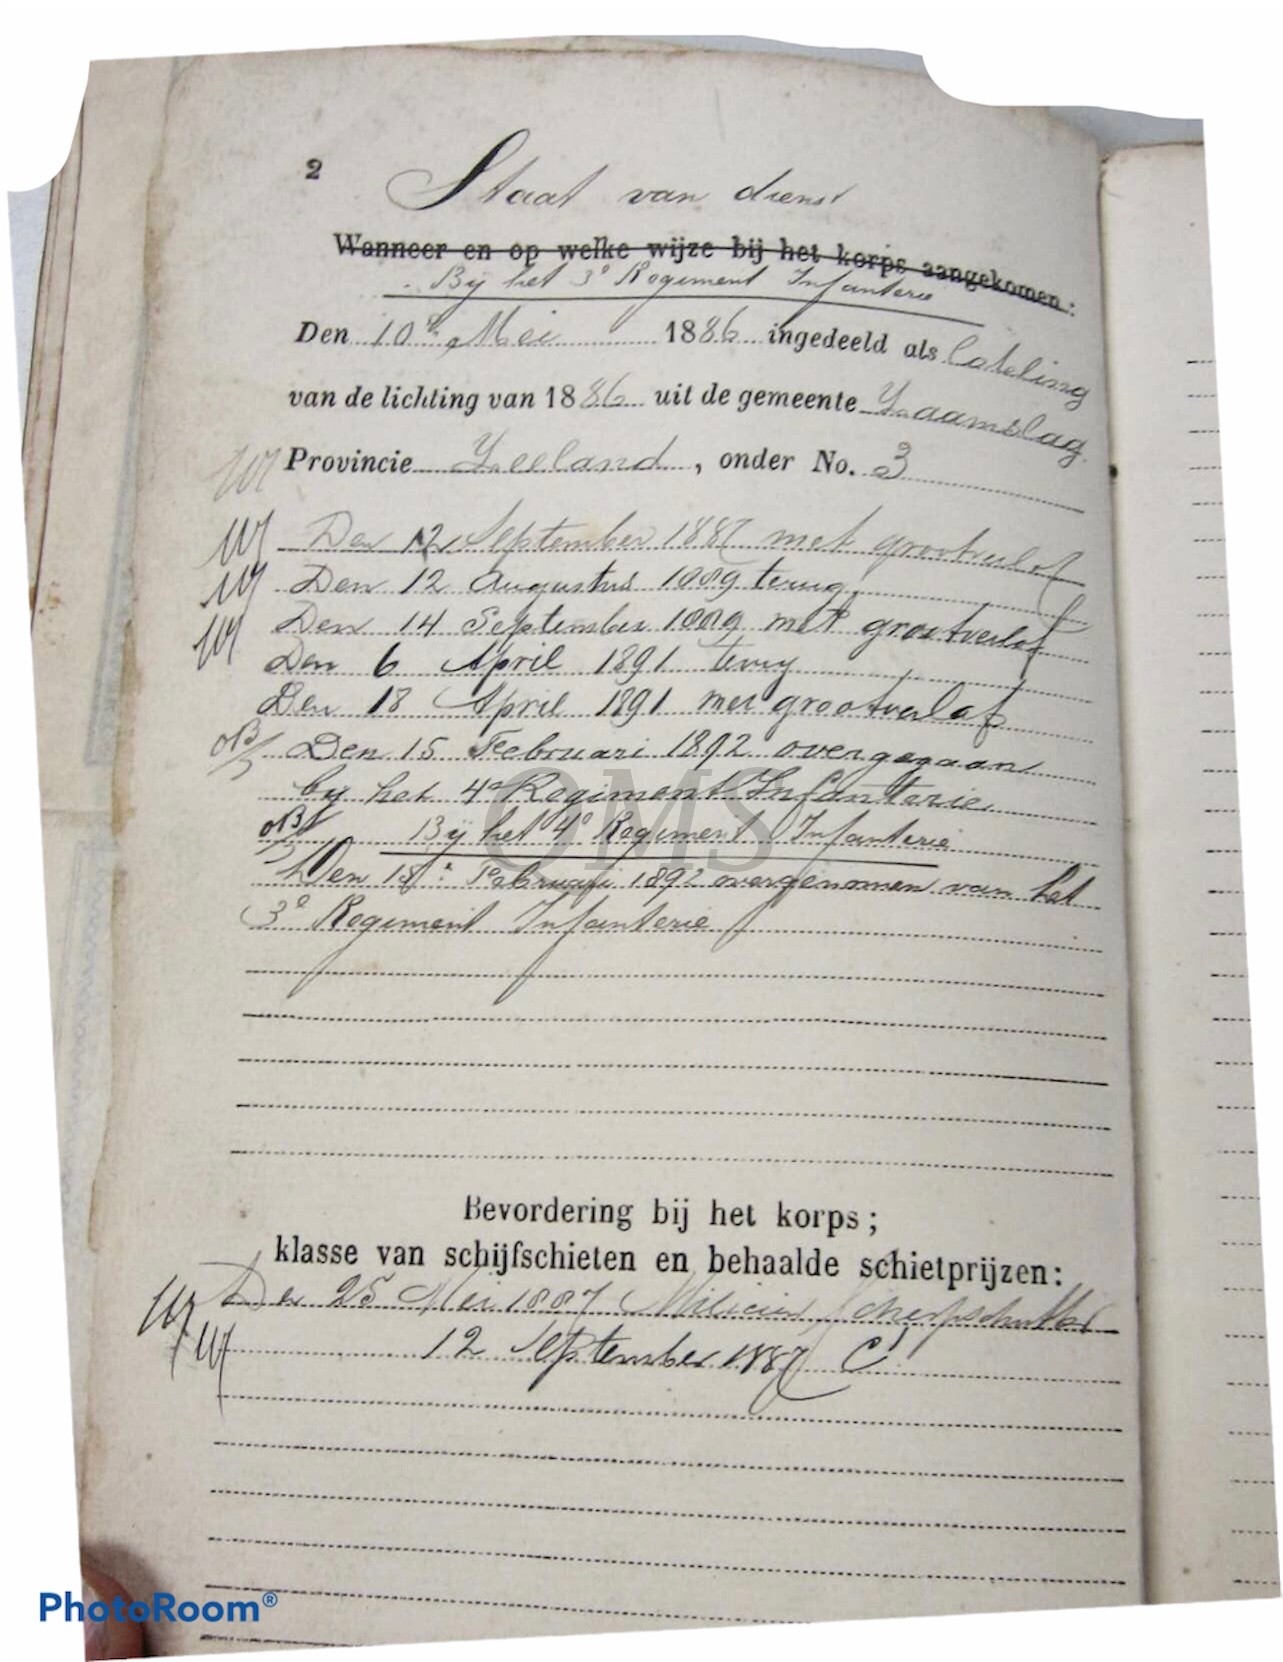 2
Staat van dienst
Wanneer en op welke wijze bij het korps aangekomen:
Bij het 3e Regiment Infanterie
Den 10n Mei 1886 ingedeeld als loteling
van de lichting van 1886 uit de gemeente Zaamslag
Provincie Zeeland, onder No. 3
Den 12 September 1887 met grootverlof
Den 12 Augustus 1889 terug
Den 14 September 1889 met grootverlof
Den 6 April 1891 terug
Den 18 April 1891 met grootverlof
Den 15 Februari 1892 overgegaan
bij het 4e Regiment Infanterie
Bij het 4e Regiment Infanterie
Den 15n Februari 1892 overgenomen van het
3e Regiment Infanterie
QMS
Bevordering bij het korps;
klasse van schijfschieten en behaalde schietprijzen:
Den 25 Mei 1887 Milicien Scherpschutter
12 September 1887 C
PhotoRoom®